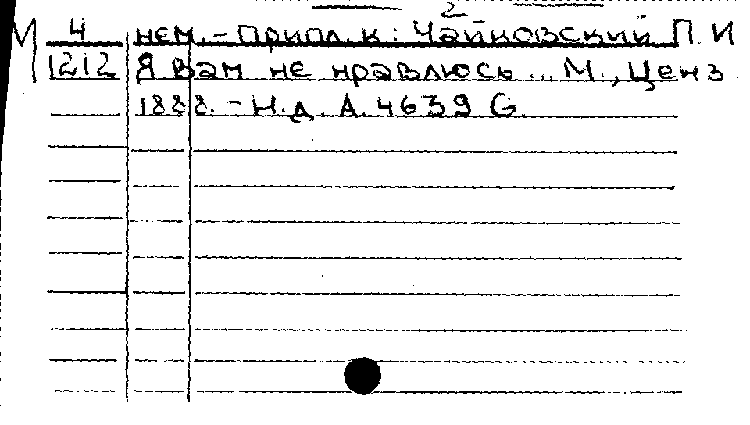 2
М 4 нем. - Припл. к: Чайковский П. И
1212 Я вам не нравлюсь... М., Ценз
1888. - Н.д. А. 4639 G.